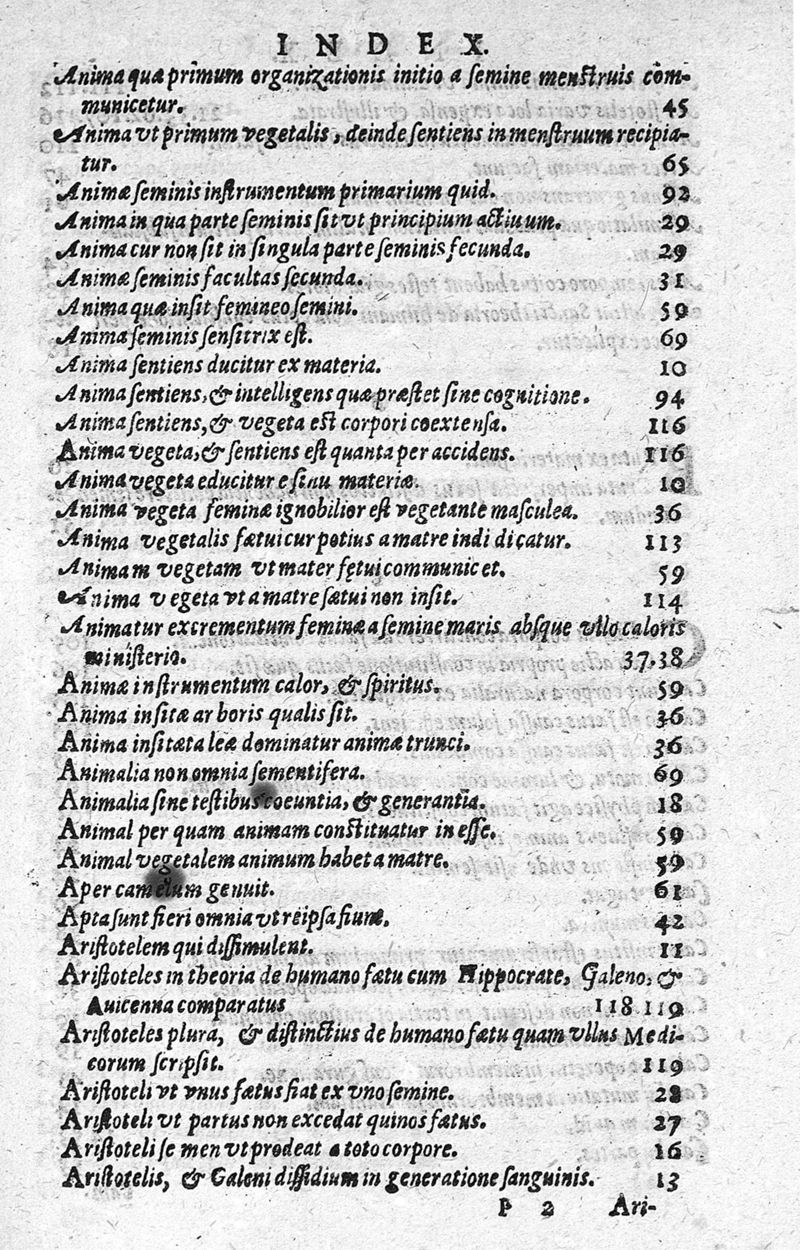 INDEX.
Anima quæ primum organizationis initio a ſemine menſtruis com-
municetur. 45
Anima vt primum vegetalis, deinde ſentiens in menſtruum recipia-
tur. 65
Animæ ſeminis inſtrumentum primarium quid. 92
Anima in qua parte ſeminis ſit vt principium actiuum. 29
Anima cur non ſit in ſingula parte ſeminis fecunda. 29
Animæ ſeminis facultas ſecunda. 31
Anima quæ inſit femineo ſemini. 59
Anima ſeminis ſenſitrix eſt. 69
Anima ſentiens ducitur ex materia. 10
Anima ſentiens, & intelligens quæ præſtet ſine cognitione. 94
Anima ſentiens, & vegeta eſt corpori coextenſa. 116
Anima vegeta, & ſentiens eſt quanta per accidens. 116
Anima vegeta educitur e ſinu materiæ. 10
Anima vegeta feminæ ignobilior eſt vegetante maſculea. 36
Anima vegetalis fætui cur potius a matre indi dicatur. 113
Animam vegetam vt mater fętui communicet. 59
Anima vegeta vt a matre fætui non inſit. 114
Animatur excrementum feminæ a ſemine maris abſque vllo caloris
miniſterio. 37.38
Animæ inſtrumentum calor, & ſpiritus. 59
Anima inſitæ arboris qualis ſit. 36
Anima inſitæ taleæ dominatur animæ trunci. 36
Animalia non omnia ſementifera. 69
Animalia ſine teſtibus coeuntia, & generantia. 18
Animal per quam animam conſtituatur in eſſe. 59
Animal vegetalem animum habet a matre. 59
Aper camelum genuit. 61
Apta ſunt fieri omnia vt reipſa fiunt. 42
Ariſtotelem qui diſſimulent. 11
Ariſtoteles in theoria de humano fætu cum Hippocrate, Galeno, &
Auicenna comparatus 118 119
Ariſtoteles plura, & diſtinctius de humano fætu quam vllus Medi-
corum ſcripſit. 119
Ariſtoteli vt vnus fætus fiat ex vno ſemine. 28
Ariſtoteli vt partus non excedat quinos fætus. 27
Ariſtoteli ſemen vt prodeat a toto corpore. 16
Ariſtotelis, & Galeni diſſidium in generatione ſanguinis. 13
P 2 Ari-